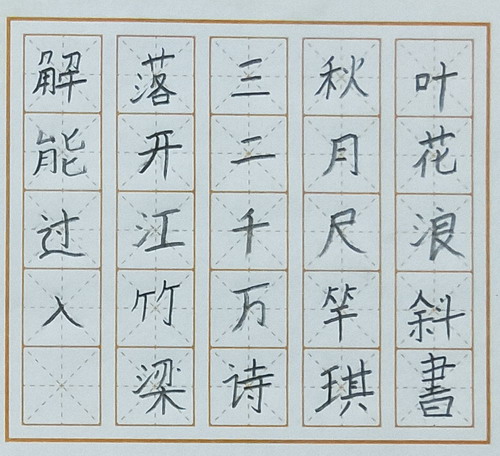 解落三秋叶
能开二月花
过江千尺浪
入竹万竿斜
梁诗琪書